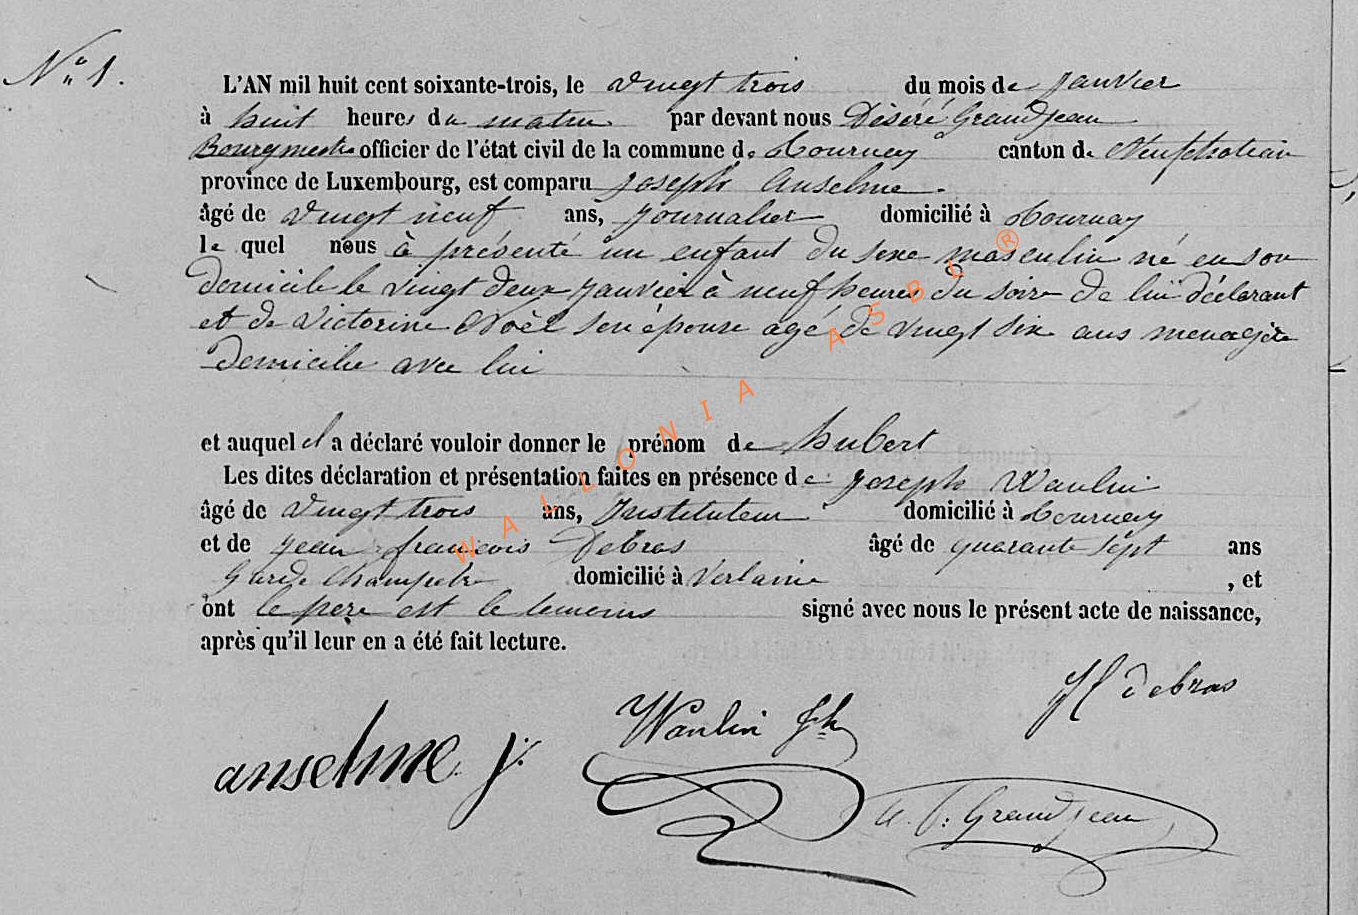 No 1.
L'AN mil huit cent soixante-trois, le vingt trois du mois de janvier
à huit heures du matin par devant nous Désiré Grandjean
Bourgmestre officier de l'état civil de la commune de Tournay canton de Neufchateau
province de Luxembourg, est comparu Joseph Anselme.
âgé de vingt neuf ans, journalier domicilié à Tournay
lequel nous à présenté un enfant du sexe masculin né en son
domicile le vingt deux janvier à neuf heures du soir de lui déclarant
et de Victorine Noël son épouse agé de vingt six ans menagère
domicilie avec lui
et auquel il a déclaré vouloir donner le prénom de hubert
Les dites déclaration et présentation faites en présence de Joseph Waulin
âgé de vingt trois ans, Instituteur domicilié à Tournay
et de jean françois Debras âgé de quarante sept ans
Garde Champetre domicilié à Verlaine , et
ont le pere et le temoins signé avec nous le présent acte de naissance,
après qu'il leur en a été fait lecture.
Jf debras
Waulin Jh
anselme j.
Grandjean
WALLONIA ASBL ®